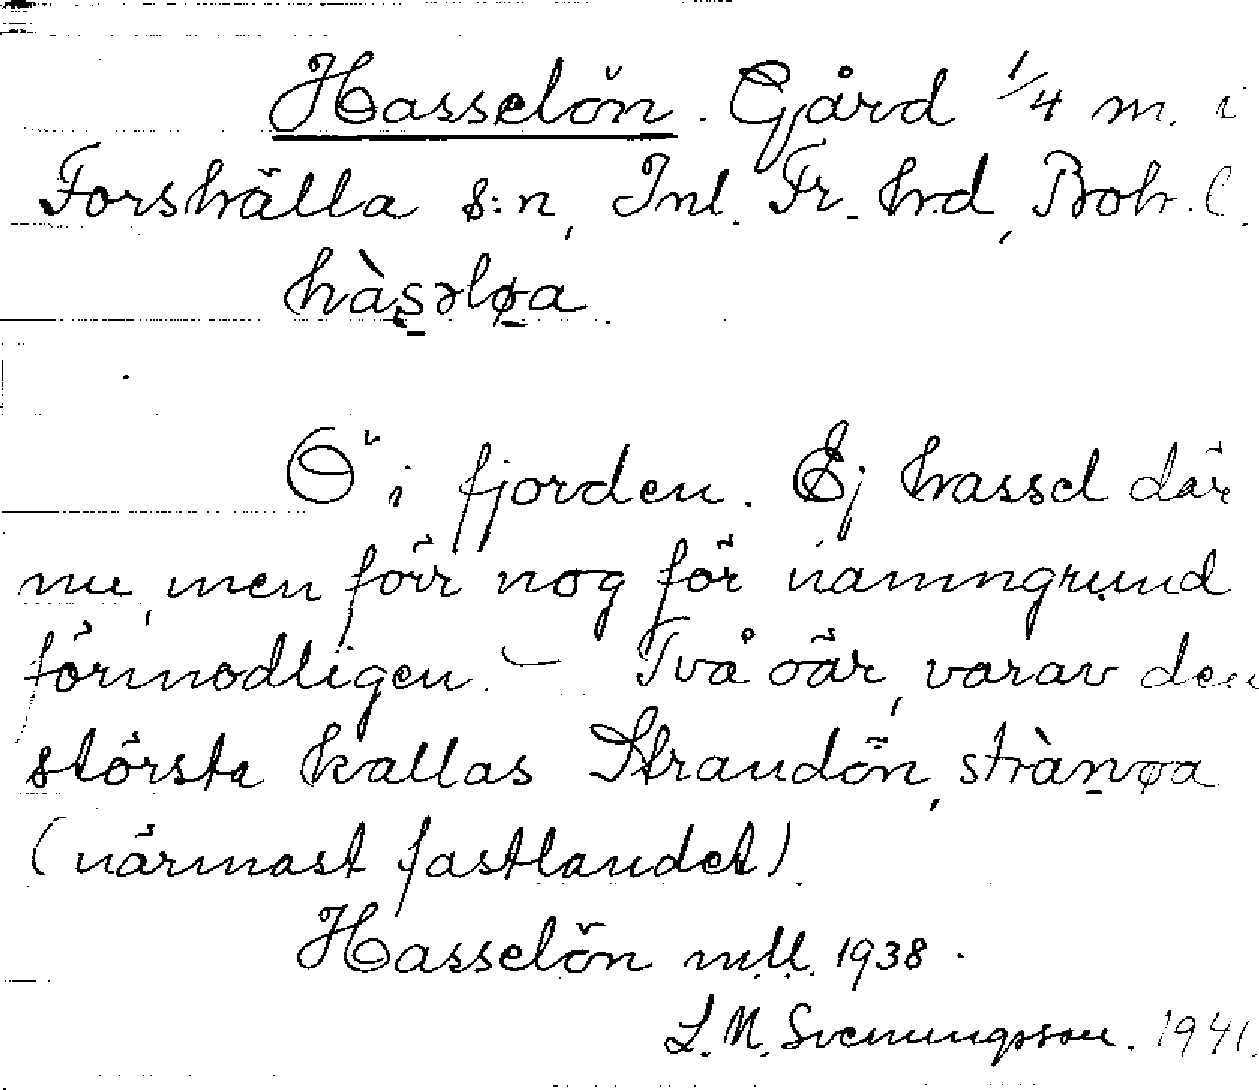 Hasselön. Gård 1/4 m. i
Forshälla s:n, Inl. Fr. hd, Boh. l.
hàsəløa.
Ö i fjorden. Ej hassel där
nu, men förr nog för namngrund
förmodligen. – Två öar, varav den
större kallas Strandön, strànøa
(närmast fastlandet)
Hasselön 1938.
S. M. Svenungsson. 1941.